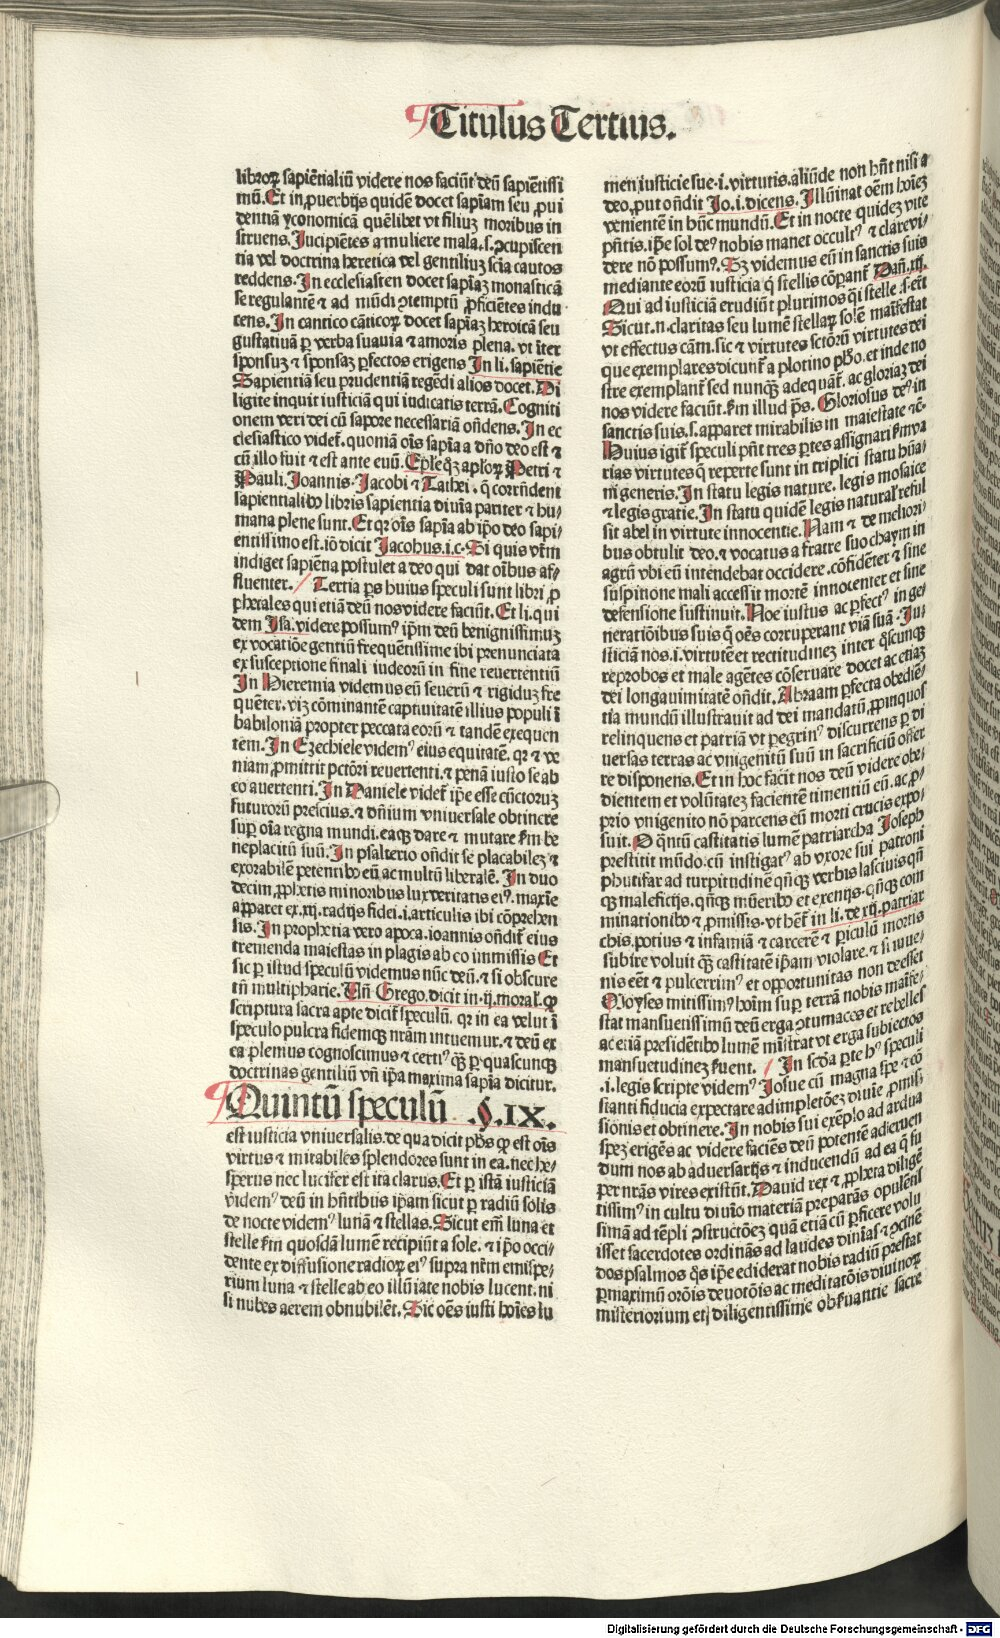 Titulus Tertius.
libroꝝ sapiētialiū videre nos faciūt deū sapiētissi
mū. Et in ꝓuerbijs quidē docet sapiaꝫ seu ꝓui
dentiā yconomicā quēlibet vt filiuꝫ moribus in
struens. Jucipiētes a muliere mala .s. ↄcupiscen
tia vel doctrina heretica vel gentiliuꝫ scia cautos
reddens. In ecclesiasten docet sapiaꝫ monasticā
se regulantē ⁊ ad mūdi ↄtemptū ꝓficiētes indu
cens. In cantico cāticoꝝ docet sapiaꝫ heroicā seu
gustatiuā ꝑ verba suauia ⁊ amoris plena. vt iter
sponsuꝫ ⁊ sponsaꝫ ꝑfectos erigens In li. sapiētie
Sapientiā seu prudentiā regēdi alios docet. Di
ligite inquit iusticiā qui iudicatis terrā. Cogniti
onem veri dei cū sapore necessariā ondens. In ec
clesiastico videt. quoniā ois sapia a dno deo est ⁊
cū illo fuit ⁊ est ante euū. Eple qꝫ aploꝝ Petri ⁊
Pauli. Joannis. Jacobi ⁊ Tathei. q corrndent
sapientialibꝰ libris sapientia diuia pariter ⁊ hu/
mana plene sunt. Et qr ois sapia ab ipo deo sapi/
entissimo est. iō dicit Jacobus .i. c. Si quis vrm
indiget sapiena postulet a deo qui dat oibus af/
fluenter. / Tertia ꝑs huius speculi sunt libri ꝓ
phetales qui etiā deū nos videre faciūt. Et li. qui
dem Isa. videre possumꝰ ipm deū benignissimuꝫ
ex vocatiōe gentiū frequētissime ibi prenunciata
ex susceptione finali iudeorū in fine reuertentiū
In Hieremia videmus eū seuerū ⁊ rigiduꝫ fre
quēter. viꝫ cōminantē captiuitatē illius populi i
babiloniā propter peccata eorū ⁊ tandē exequen
tem. In Ezechiele videmꝰ eius equitatē. qr ⁊ ve
niam ꝓmittit pctōri reuertenti. ⁊ penā iusto se ab
eo auertenti. In Daniele videt ipe esse cūctoruꝫ
futurorū prescius. ⁊ dnium vniuersale obtinere
suꝑ oia regna mundi. eaqꝫ dare ⁊ mutare ẜm be
neplacitū suū. In psalterio ondit se placabileꝫ ⁊
exorabilē petentibꝰ eū ac multū liberalē. In duo
decim ꝓphetis minoribus lux veritatis eiꝰ. maxie
apparet ex .xij. radijs fidei .i. articulis ibi cōprehen
sis. In prophetia vero apoca. ioannis ondit eius
tremenda maiestas in plagis ab eo immissis Et
sic ꝑ istud speculū videmus nūc deū. ⁊ si obscure
tn multipharie. Un Grego. dicit in .ij. moral. ꝙ
scriptura sacra apte dicit speculū. qr in ea velut i
speculo pulcra fidemqꝫ nram intuemur. ⁊ deū ex
ea plenius cognoscimus ⁊ certiꝰ qꝫ ꝑ quascunqꝫ
doctrinas gentiliū vn ipa maxima sapia dicitur.
Quintū speculū .§. IX.
est iusticia vniuersalis. de qua dicit phs ꝙ est ois
virtus ⁊ mirabiles splendores sunt in ea. nec he/
sperus nec lucifer est ita clarus. Et ꝑ istā iusticiā
videmꝰ deū in hntibus ipam sicut ꝑ radiū solis
de nocte videmꝰ lunā ⁊ stellas. Sicut em luna et
stelle ẜm quosdā lumē recipiūt a sole. ⁊ ipo occi/
dente ex diffusione radioꝝ eiꝰ supra nrm emispe/
rium luna ⁊ stelle ab eo illūiate nobis lucent. ni
si nubes aerem obnubilēt. Sic oēs iusti hoies lu
men iusticie sue .i. virtutis. aliūde non hnt nisi a
deo. put ondit Jo. i. dicens. Illūinat oēm hoieꝫ
venientē in hūc mundū. Et in nocte quideꝫ vite
pntis. ipe sol deꝰ nobis manet occultꝰ ⁊ clare vi/
dere nō possumꝰ. Sꝫ videmus eū in sanctis suis
mediante eorū iusticia q stellis cōꝑant Dan. xij.
Qui ad iusticiā erudiūt plurimos qi stelle .s. ert
Sicut .n. claritas seu lumē stellaꝝ solē maifestat
vt effectus cām. sic ⁊ virtutes sctōrū virtutes dei
que exemplares dicunt a plotino phō. et inde no
stre exemplant sed nunqꝫ adequant. ac gloriaꝫ dei
nos videre faciūt. ẜm illud ps. Gloriosus deꝰ in
sanctis suis .s. apparet mirabilis in maiestate ⁊c.
Huius igit speculi pnt tres ꝑtes assignari ẜm va
rias virtutes q reperte sunt in triplici statu hūa/
ni generis. In statu legis nature. legis mosaice
⁊ legis gratie. In statu quidē legis natural reful
sit abel in virtute innocentie. Nam ⁊ de meliori/
bus obtulit deo. ⁊ vocatus a fratre suo chaym in
agrū vbi eū intendebat occidere. cōfidēter ⁊ sine
suspitione mali accessit mortē innocenter et sine
defensione sustinuit. Noe iustus ac ꝑfectꝰ in ge/
neratiōibus suis q oēs corruperant viā suā. Iu/
sticiā nos .i. virtutē et rectitudineꝫ inter qscunqꝫ
reprobos et male agētes cōseruare docet ac etiaꝫ
dei longauimitatē ondit. Abraam ꝑfecta obediē/
tia mundū illustrauit ad dei mandatū. ꝓpinquos
relinquens et patriā vt ꝑegrinꝰ discurrens ꝑ di
uersas terras ac vnigenitū suū in sacrificiū offer
re disponens. Et in hoc facit nos deū videre obe/
dientem et volūtateꝫ facientē timentiū eū. ac ꝓ/
prio vnigenito nō parcens eū morti crucis expo/
suit. O qntū castitatis lumē patriarcha Joseph
prestitit mūdo. cū instigatꝰ ab vxore sui patroni
phutifar ad turpitudinē qnqꝫ verbis lasciuis qn
qꝫ maleficijs. qnqꝫ mūeribꝰ et exenijs. qnqꝫ com
minationibꝰ ⁊ ꝓmissis. vt het in li. de xij. patriar
chis. potius ⁊ infamiā ⁊ carcerē ⁊ ꝑiculū mortis
subire voluit qꝫ castitatē ipam violare. ⁊ si iuue/
nis eēt ⁊ pulcerrimꝰ et opportunitas non deesset
Moyses mitissimꝰ hoim suꝑ terrā nobis maife/
stat mansuetissimū deū erga ↄtumaces et rebelles
ac etiā presidētibꝰ lumē mistrat vt erga subiectos
mansuetudineꝫ ẜuent. / In scda ꝑte hꝰ speculi
.i. legis scripte videmꝰ Josue cū magna spe ⁊ cō
stanti fiducia expectare adimpletōeꝫ diuie ꝓmis/
sionis et obtinere. In nobis sui exēplo ad ardua
speꝫ erigēs ac videre faciēs deū potentē adieuen
dum nos ab aduersarijs ⁊ inducendū ad ea q su
per nrās vires existūt. Dauid rex ⁊ ꝓpheta diligē
tissimꝰ in cultu diuio materiā preparās opulens
simā ad tēpli ↄstructōeꝫ quā etiā cū ꝑficere volu
isset sacerdotes ordinās ad laudes diuias ⁊ ↄcinē
dos psalmos qs ipe ediderat nobis radiū prestat
ꝑmaximū orōis deuotōis ac meditatōis diuinoꝝ
misteriorium et diligentissime obẜuantie sacre
Digitalisierung gefördert durch die Deutsche Forschungsgemeinschaft - DFG